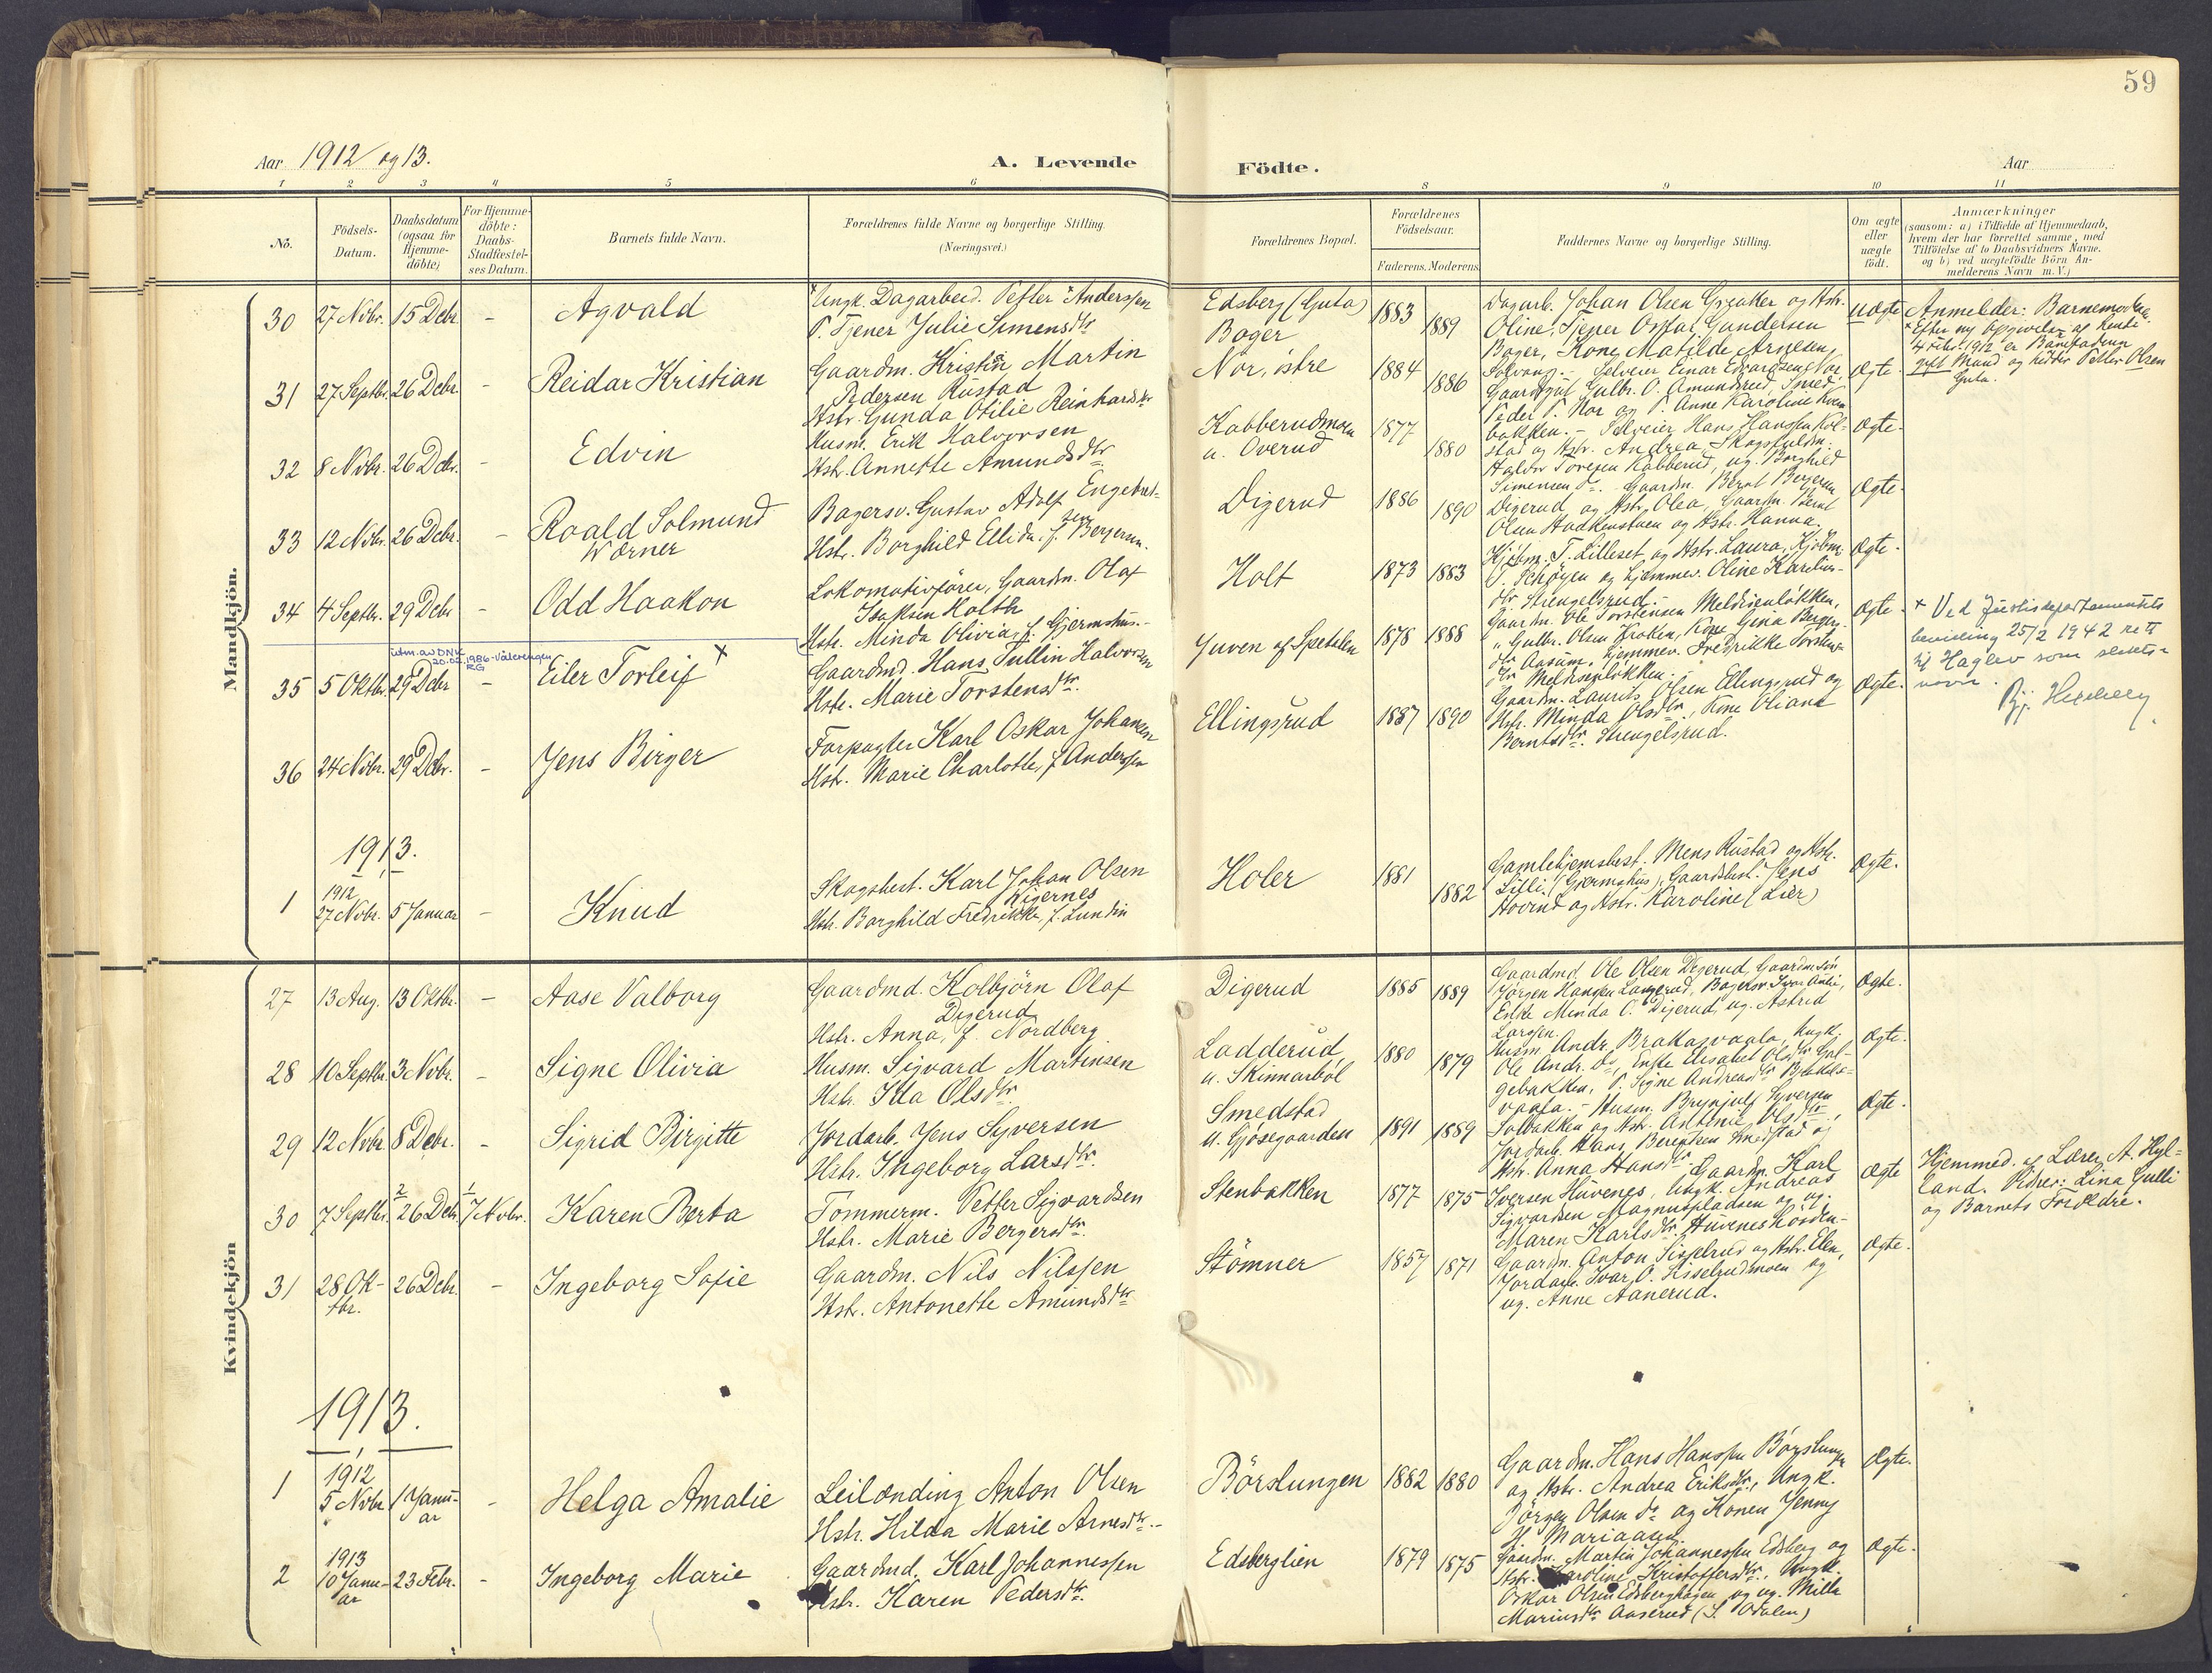 59
Aar 1912 og 13.
A. Levende
Födte.
Aar
1 2 3 4 5 6 8 9 10 11
No.
Födsels-
Datum.
Daabsdatum
(ogsaa for
Hjemme-
döbte)
For Hjemme-
döbte:
Daabs-
Stadfæstel-
ses Datum.
Barnets fulde Navn.
Forældrenes fulde Navne og borgerlige Stilling
(Næringsvei.)
Forældrenes Bopæl.
Forældrenes
Födselsaar.
Faderens. Moderens.
Faddernes Navne og borgerlige Stilling.
Om ægte
eller
uægte
födt.
Anmærkninger
(saasom: a) i Tilfælde af Hjemmedaab,
hvem der har forrettet samme, med
Tilföielse af to Daabsvidners Navne.
og b) ved uægtefödte Börn An-
melderens Navn m. V.)
Mandkjön.
30 27 Novbr. 15 Decbr - Agvald
Ungk. Dagarbeid. Petter Anderssen
P. Tjener Julie Simensdtr
Edsberg (Guta)
Boger
1883 1889
Dagarb. Johan Olsen Greaker og Hstr.
Oline, Tjener Gundersen
Boger, Kone Matilde Arnesen,
uægte
Anmelder: Barnemoderen.
gift Mand og hedder Petter Olsen
Guta.
31 27 Septbr. 26 Decbr - Reidar Kristian
Gaardm. Kristian Martin
Pedersen Rustad
Hstr. Gunda Otilie Reinhardsdtr
Nor, östre
1884 1886
Solvang. - Selveier Einar Edvardsen, Nor,
Gaardgut Gulbr. O. Amundsrud, Smed
Peder P. Nor og P. Anne Karoline Kvern
bakken. -
Ægte.
32 8 Novbr. 26 Decbr. - Edvin
Husm. Erik Halvorsen
Hstr. Annette Amundsdtr
Kabberudmoen
u. Overud
1877 1880
Selveier Hans Hanssen Kol-
stad og Hstr. Andrea, Skogsfuldm.
Halvor Toresen Kabberud, ug. Borghild
Simensen do.
Ægte.
33 12 Novbr. 26 Decbr. - Roald Solmund
Wærner
Bagersv. Gustav Adolf Engebret-
sen
Hstr. Borghild Ellida, f. Bergersen.
Digerud
1886 1890
Gaardm. Bernt Bergersen
Digerud og Hstr. Olea, Gaardm. Bernt
Olsen og Hstr. Hanna.
Ægte.
34 4 Septbr. 29 Decbr - Odd Haakon
Lokomotivförer, Gaardm. Olaf
Isaksen Holth
Hstr. Minda Olivia, f. Gjermshus. -
Holt
1873 1883
Kjöbm. T. Lilleset og Hstr. Laura, Kjöbm.
og hjemmev. Oline Karelius-
dtr Strengelsrud. -
Ægte.
utm. av DNK
20.02.1986 - Vålerengen
RG
35 5 Oktbr. 29 Decbr - Eiler Torleif X
Gaardmd. Hans Tullin Halvorsen
Hstr. Marie Torstensdtr.
Juven af Spetalen
1878 1888
Gaardm. Ole Torstensen Meldisenløkken,
" Gulbr. Olsen Kroken, Kone Gina Berger-
dtr Aasum, hjemmev. Fredrikke Torstens-
dtr Meldisenløkken.
Ægte.
x Ved Justisdepartementets
bevilling 25/2 1942 rett
til Haglev som slekts-
navn.
36 24 Novbr. 29 Decbr. - Jens Birger
Forpagter Karl Oskar Johansen
Hstr. Marie Charlotte, f. Anderssen
Ellingsrud
1887 1890
Gaardm. Laurits Olsen Ellingsrud og
Hstr. Minda Olsdtr., Kone Oliana
Berntsdtr. Strengelsrud.
Ægte.
1913.
1 1912
27 Novbr. 5 Januar - Knud
Skogsbest. Karl Johan Olsen
Kjernes
Hstr. Borghild Fredrikke, f. Lundin
Holer
1881 1882
Gamlehjemsbest. Mens Rustad og Hstr.
Lilli (Gjermshus), Gaardsbest. Jens
Hovrud og Hstr. Karoline (Lier)
Ægte.
Kvindekjön
27 13 Aug. 13 Oktbr. - Aase Valborg
Gaardmd. Kolbjörn Olaf
Digerud
Hstr. Anna, f. Nordberg
Digerud
1885 1889
Gaardmd. Ole Olsen Digerud, Gaardm.sön
Jørgen Hanssen Langerud, Bagersv.
Enke Minda O. Digerud, ug. Astrid
Larssen.
Ægte.
28 10 Septbr. 3 Novbr. - Signe Olivia
Husm. Sigvard Martinsen
Hstr. Ida Olsdtr.
Ladderud
u. Skinnarböl
1880 1879
Husm. Andr. Brakarvaala, Ungk.
Ole Andr. do, Enke Elisabet Olsdtr Gal-
gebakken, P. Signe Andreasdtr Brakar-
vaala. -
Ægte.
29 12 Novbr 8 Decbr. - Sigrid Birgitte
Jordarb. Jens Syversen
Hstr. Ingeborg Larsdtr.
Smedstad
u. Gjøsegaarden
1891 1889
Husm. Brynjulf Syversen
Solbakken og Hstr. Antonie Olsdtr,
Jordarb. Hans Berentsen Smedstad og
Hstr. Anna Hansdtr.
Ægte.
30 7 Septbr. 2 26 Decbr 1 7 Novbr. Karen Berta
Tømmerm. Petter Sigvardsen
Hstr. Marie Bergersdtr.
Stenbakken
1877 1875
Gaardm. Karl
Iversen Huvenes, Ungk. Andreas
Sigvardsen Magnuspladsen og ug.
Maren Karlsdtr. Huvenes
Ægte
Hjemmed. af Lærer A. Hyl-
land. Vidner: Lina Gulli
og Barnets Forældre.
31 28 Ok-
tbr. 26 Decbr. - Ingeborg Sofie
Gaardm. Nils Nilssen
Hstr. Antonette Amundsdtr
Stömner
1857 1871
Gaardm. Anton Sisselrud og Hstr. Elen,
Jordarb. Ivar O. Sisselrudmoen og
ug. Anne Aanerud.
Ægte.
1913.
1 1912
5 Novbr 1 Janu-
ar - Helga Amalie
Leilænding Anton Olsen
Hstr. Hilda Marie Arnesdtr. -
Börslungen
1882 1880
Gaardm. Hans Hanssen Börslungen
og Hstr. Andrea Eriksdtr., Ungk.
Jörgen Olsen do og Konen Jenny
H. Mariaasen.
Ægte.
2 1913
10 Janu-
ar 23 Febr. - Ingeborg Marie
Gaardmd. Karl Johannessen
Hstr. Karen Pedersdtr.
Edsberglien
1879 1875
Gaardm. Martin Johannessen Edsberg og
Hstr. Karoline Kristoffersdtr., Ungk.
Oskar Olsen Edsberghagen og ug. Milla
Mariusdtr Aaserud (S. Odalen)
Ægte.